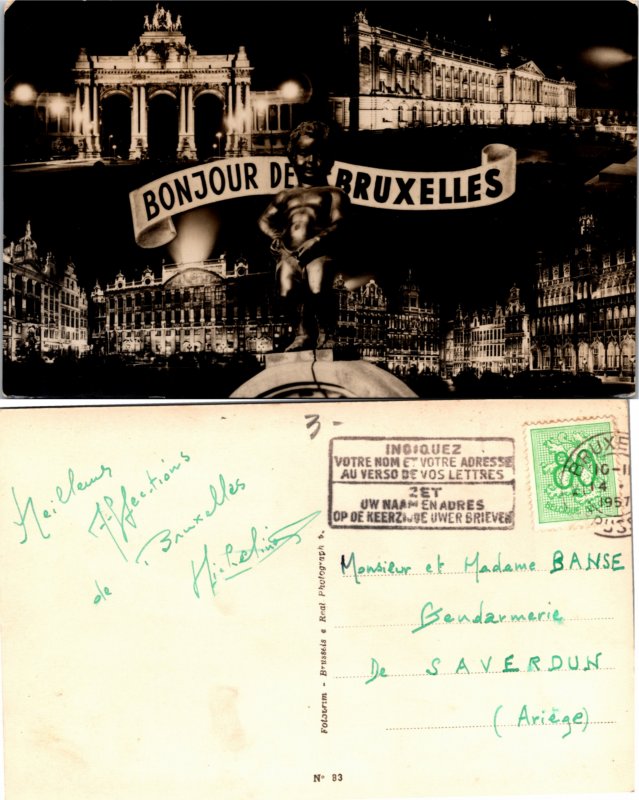 BONJOUR DE BRUXELLES
3-
INDIQUEZ
VOTRE NOM ET VOTRE ADRESSE
AU VERSO DE VOS LETTRES
ZET
UW NAAM EN ADRES
OP DE KEERZIJDE UWER BRIEVEN
80
BRUXE
1957
Meilleures
Affections
de Bruxelles
Monsieur et Madame BANSE
Gendarmerie
De SAVERDUN
(Ariège)
Fotoprim - Brussels • Real Photograph
N° 93